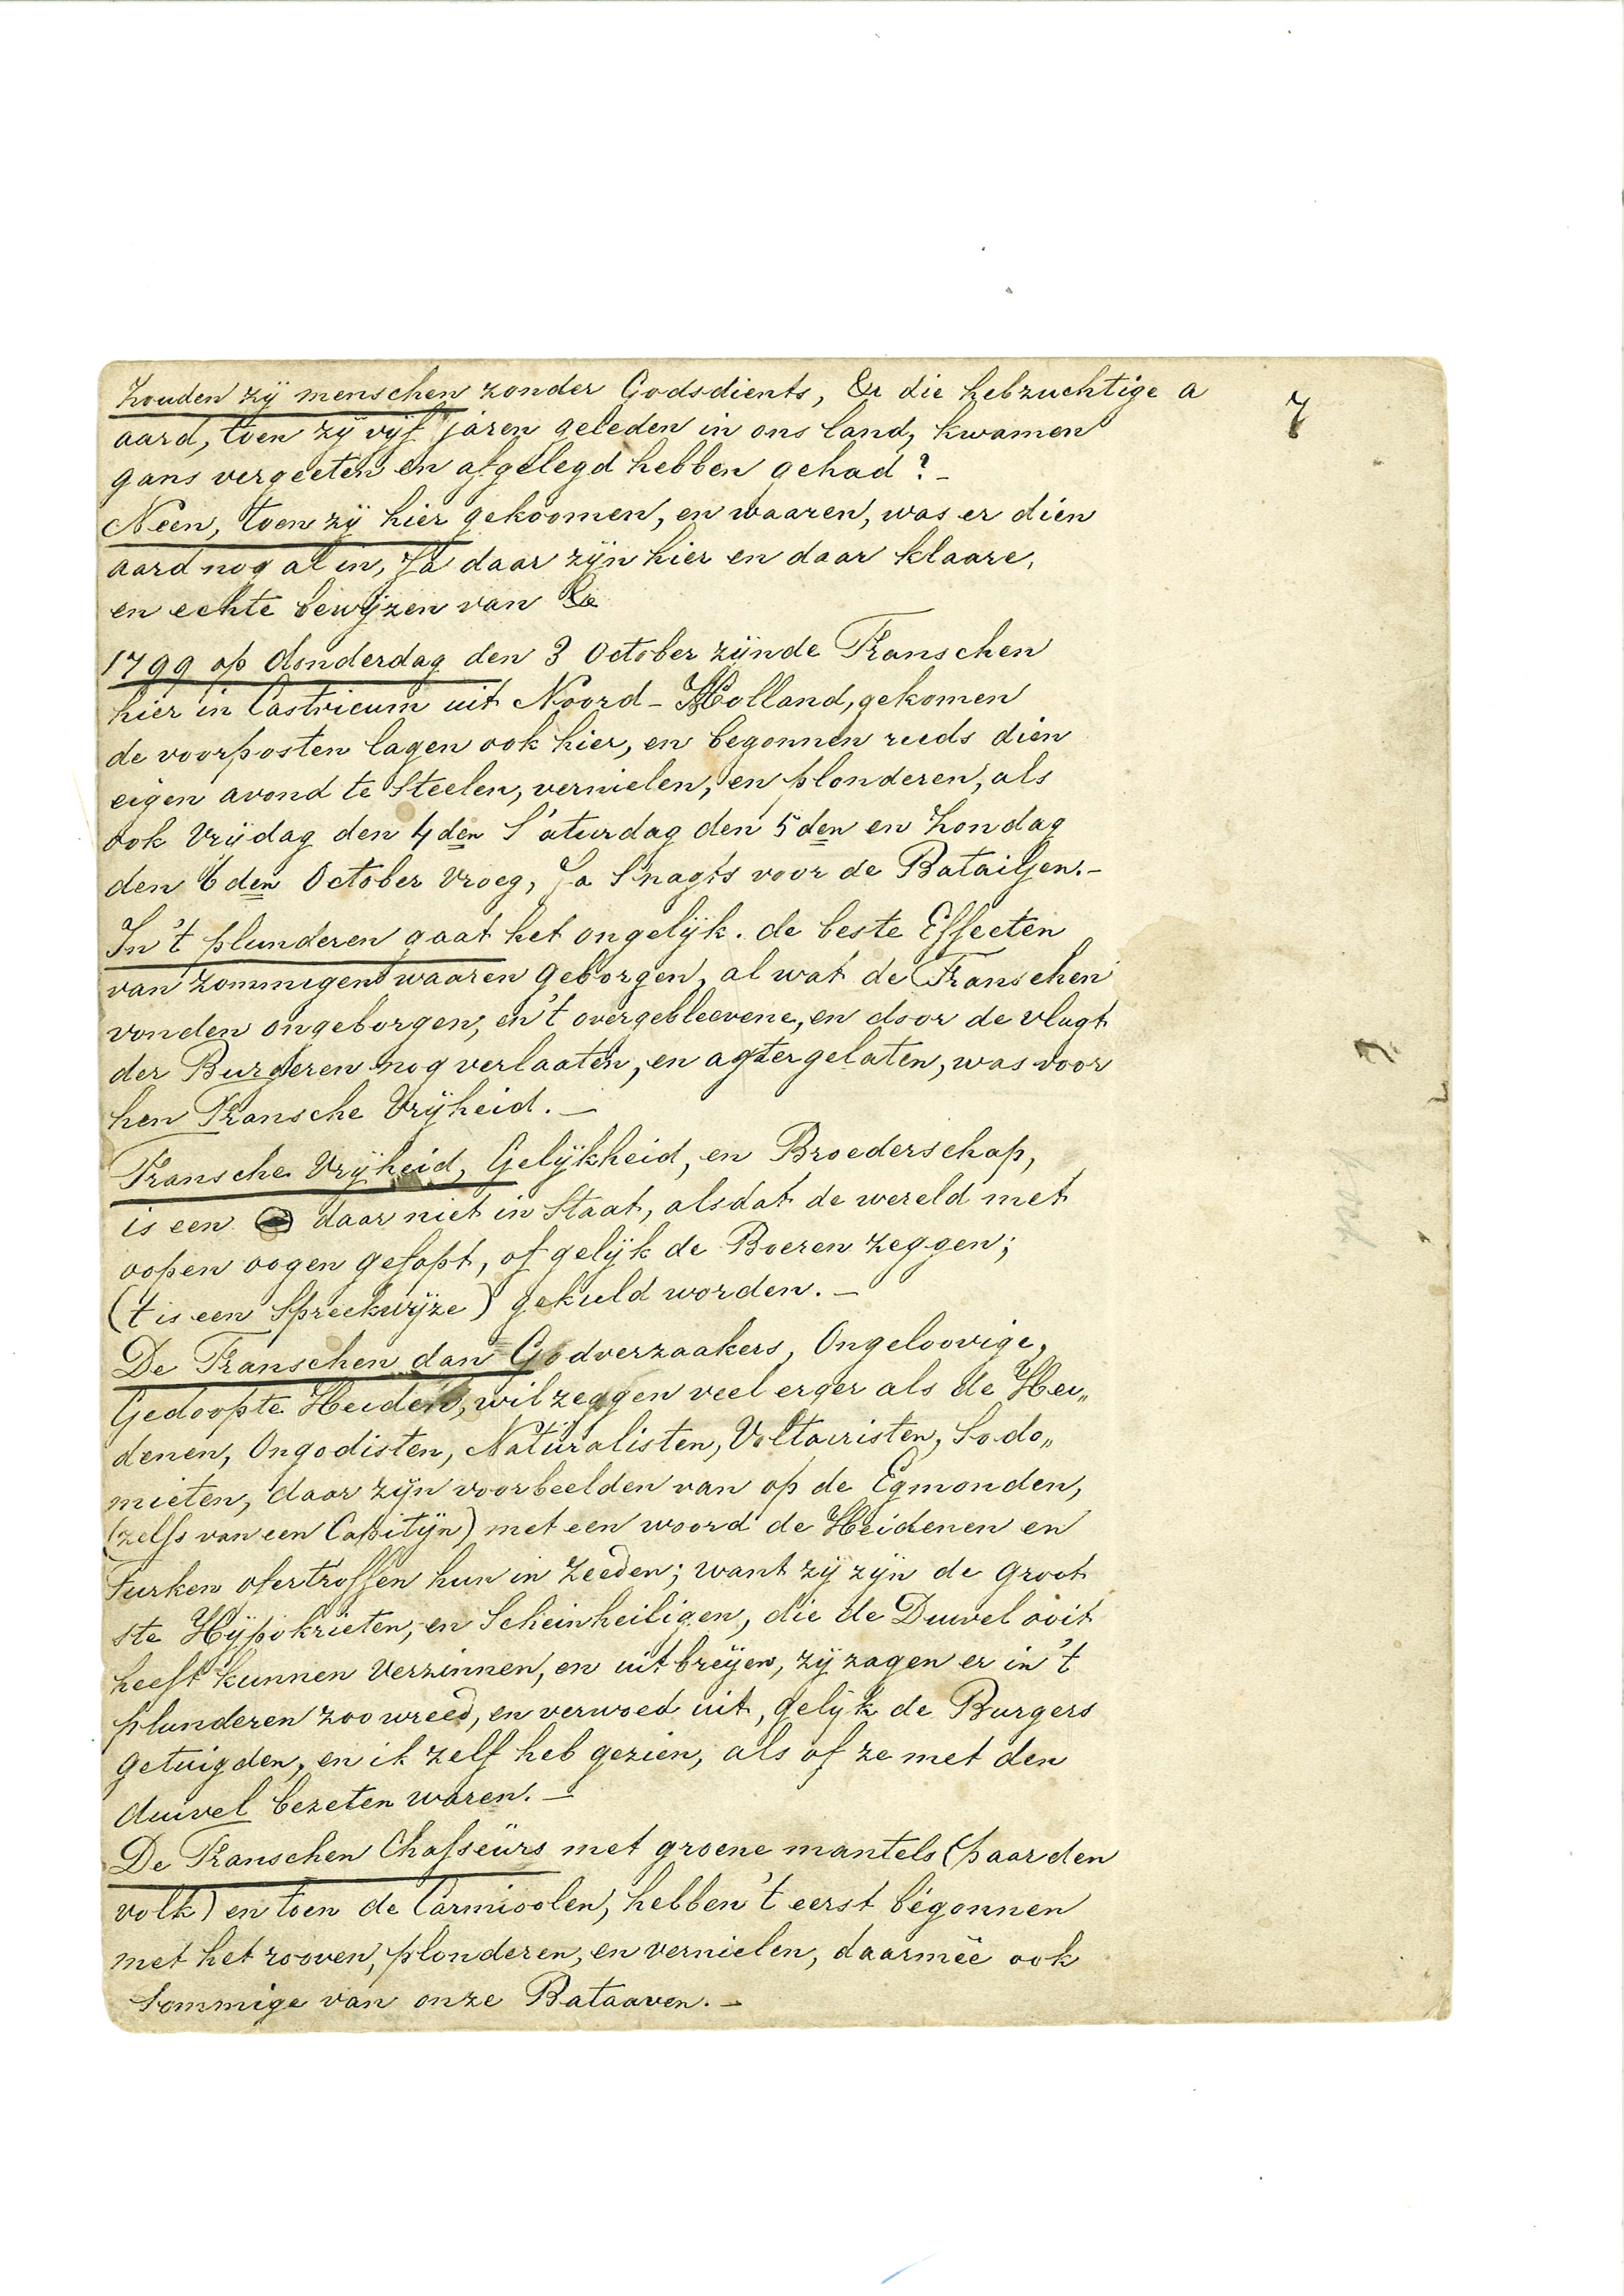 Zouden zÿ menschen zonder Godsdients, &a die hebzuchtige a
7
aard, toen zÿ vijf jaren geleden in ons land, kwamen
gans vergeeten en afgelegd hebben gehad? -
Neen, toen zÿ hier gekoomen, en waaren, was er dien
aard nog al in, Ja daar zÿn hier en daar klaare,
en echte bewÿzen van &a
1799 op donderdag den 3 October zÿnde Franschen
hier in Castricum uit Noord-Holland, gekomen
de voorposten lagen ook hier, en begonnen reeds dien
eigen avond te Steelen, vernielen, en plonderen, als
ook Vrÿdag den 4den S'aturdag den 5den en Zondag
den 6den October vroeg, Ja S'nagts voor de Batailjen. -
In 't plunderen gaat het ongelÿk. de beste Effecten
van zommigen waaren geborgen, al wat de Franschen
vonden ongeborgen, en 't overgebleevene, en door de vlugt
der Burgeren nog verlaaten, en agtergelaten, was voor
hen Fransche Vrÿheid. -
Fransche Vrÿheid, Gelÿkheid, en Broederschap,
is een daar niet in Staat, alsdat de wereld met
oopen oogen gefopt, of gelÿk de Boeren zeggen;
(t is een Spreekwÿze) gekuld worden. -
De Franschen dan Godverzaakers, Ongeloovige,
Gedoopte Heiden, wil zeggen veel erger als de Hei„
denen, Ongodisten, Natüralisten, Voltairisten, Sodo„
mieten, daar zÿn voorbeelden van op de Egmonden,
(zelfs van een Capitÿn) met een woord de Heidenen en
Turken ofertroffen hun in Zeeden; want zÿ zÿn de groot
ste Hÿpokrieten, en Scheinheiligen, die de Duivel ooit
heeft kunnen Verzinnen, en uitbreÿen, zÿ zagen er in 't
plunderen zoo wreed, en verwoed uit, gelÿk de Burgers
getuigden, en ik zelf heb gezien, als of ze met den
duivel bezeten waren. -
De Franschen Chasseürs met groene mantels (paarden
volk) en toen de Carmioolen, hebben 't eerst begonnen
met het rooven, plonderen, en vernielen, daarmêe ook
Sommige van onze Bataaven. -